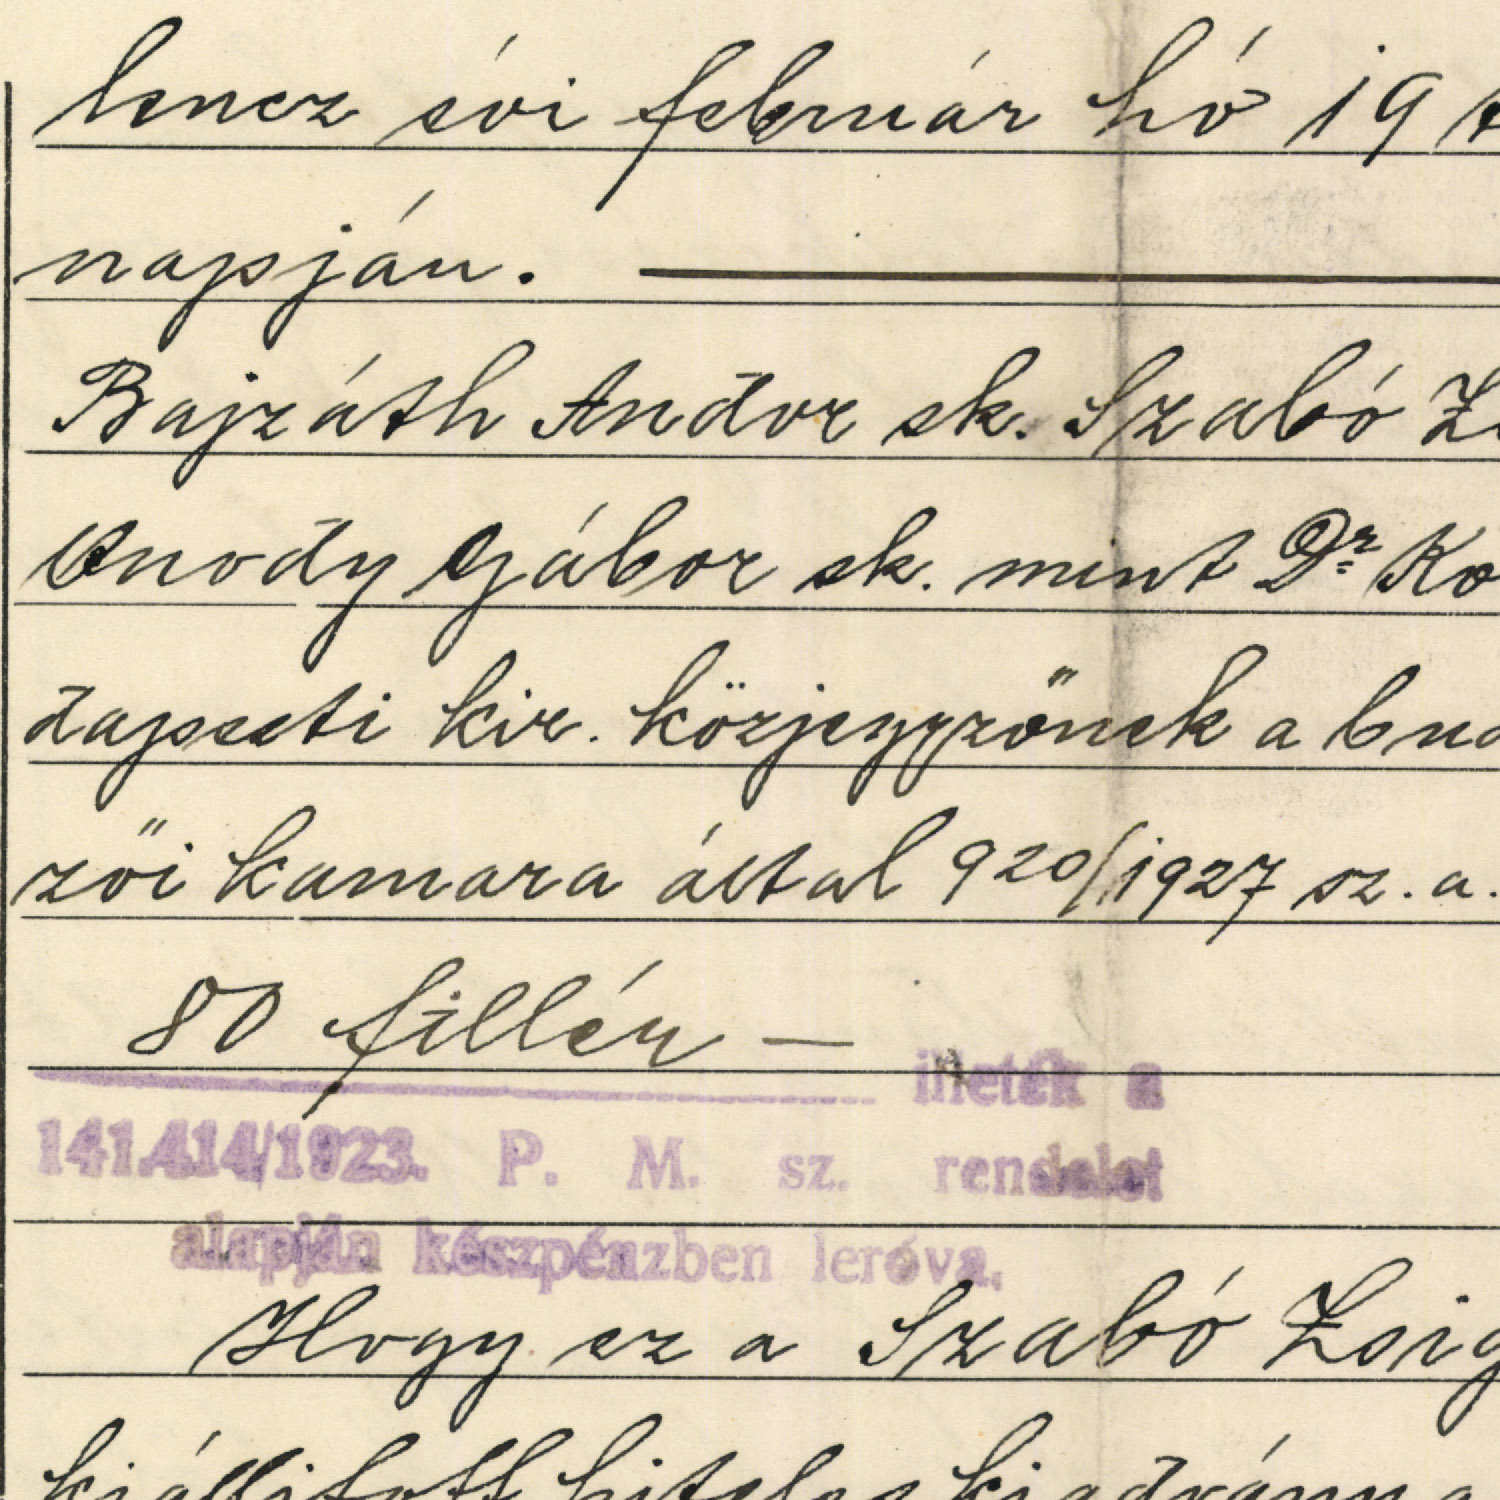 lencz évi február hó 19
napján.
Bajzáth Andor sk. Szabó
Ónody Gábor sk. mint Dr Ko
dapesti kir. közjegyzőnek a bud
zői kamara által 920/1927 sz. a.
80 fillér —
illeték a
141.414/1923. P. M. sz. rendelet
alapján készpénzben leróva.
Hogy ez a Szabó Zsig
kiállított hiteles kiadvány a